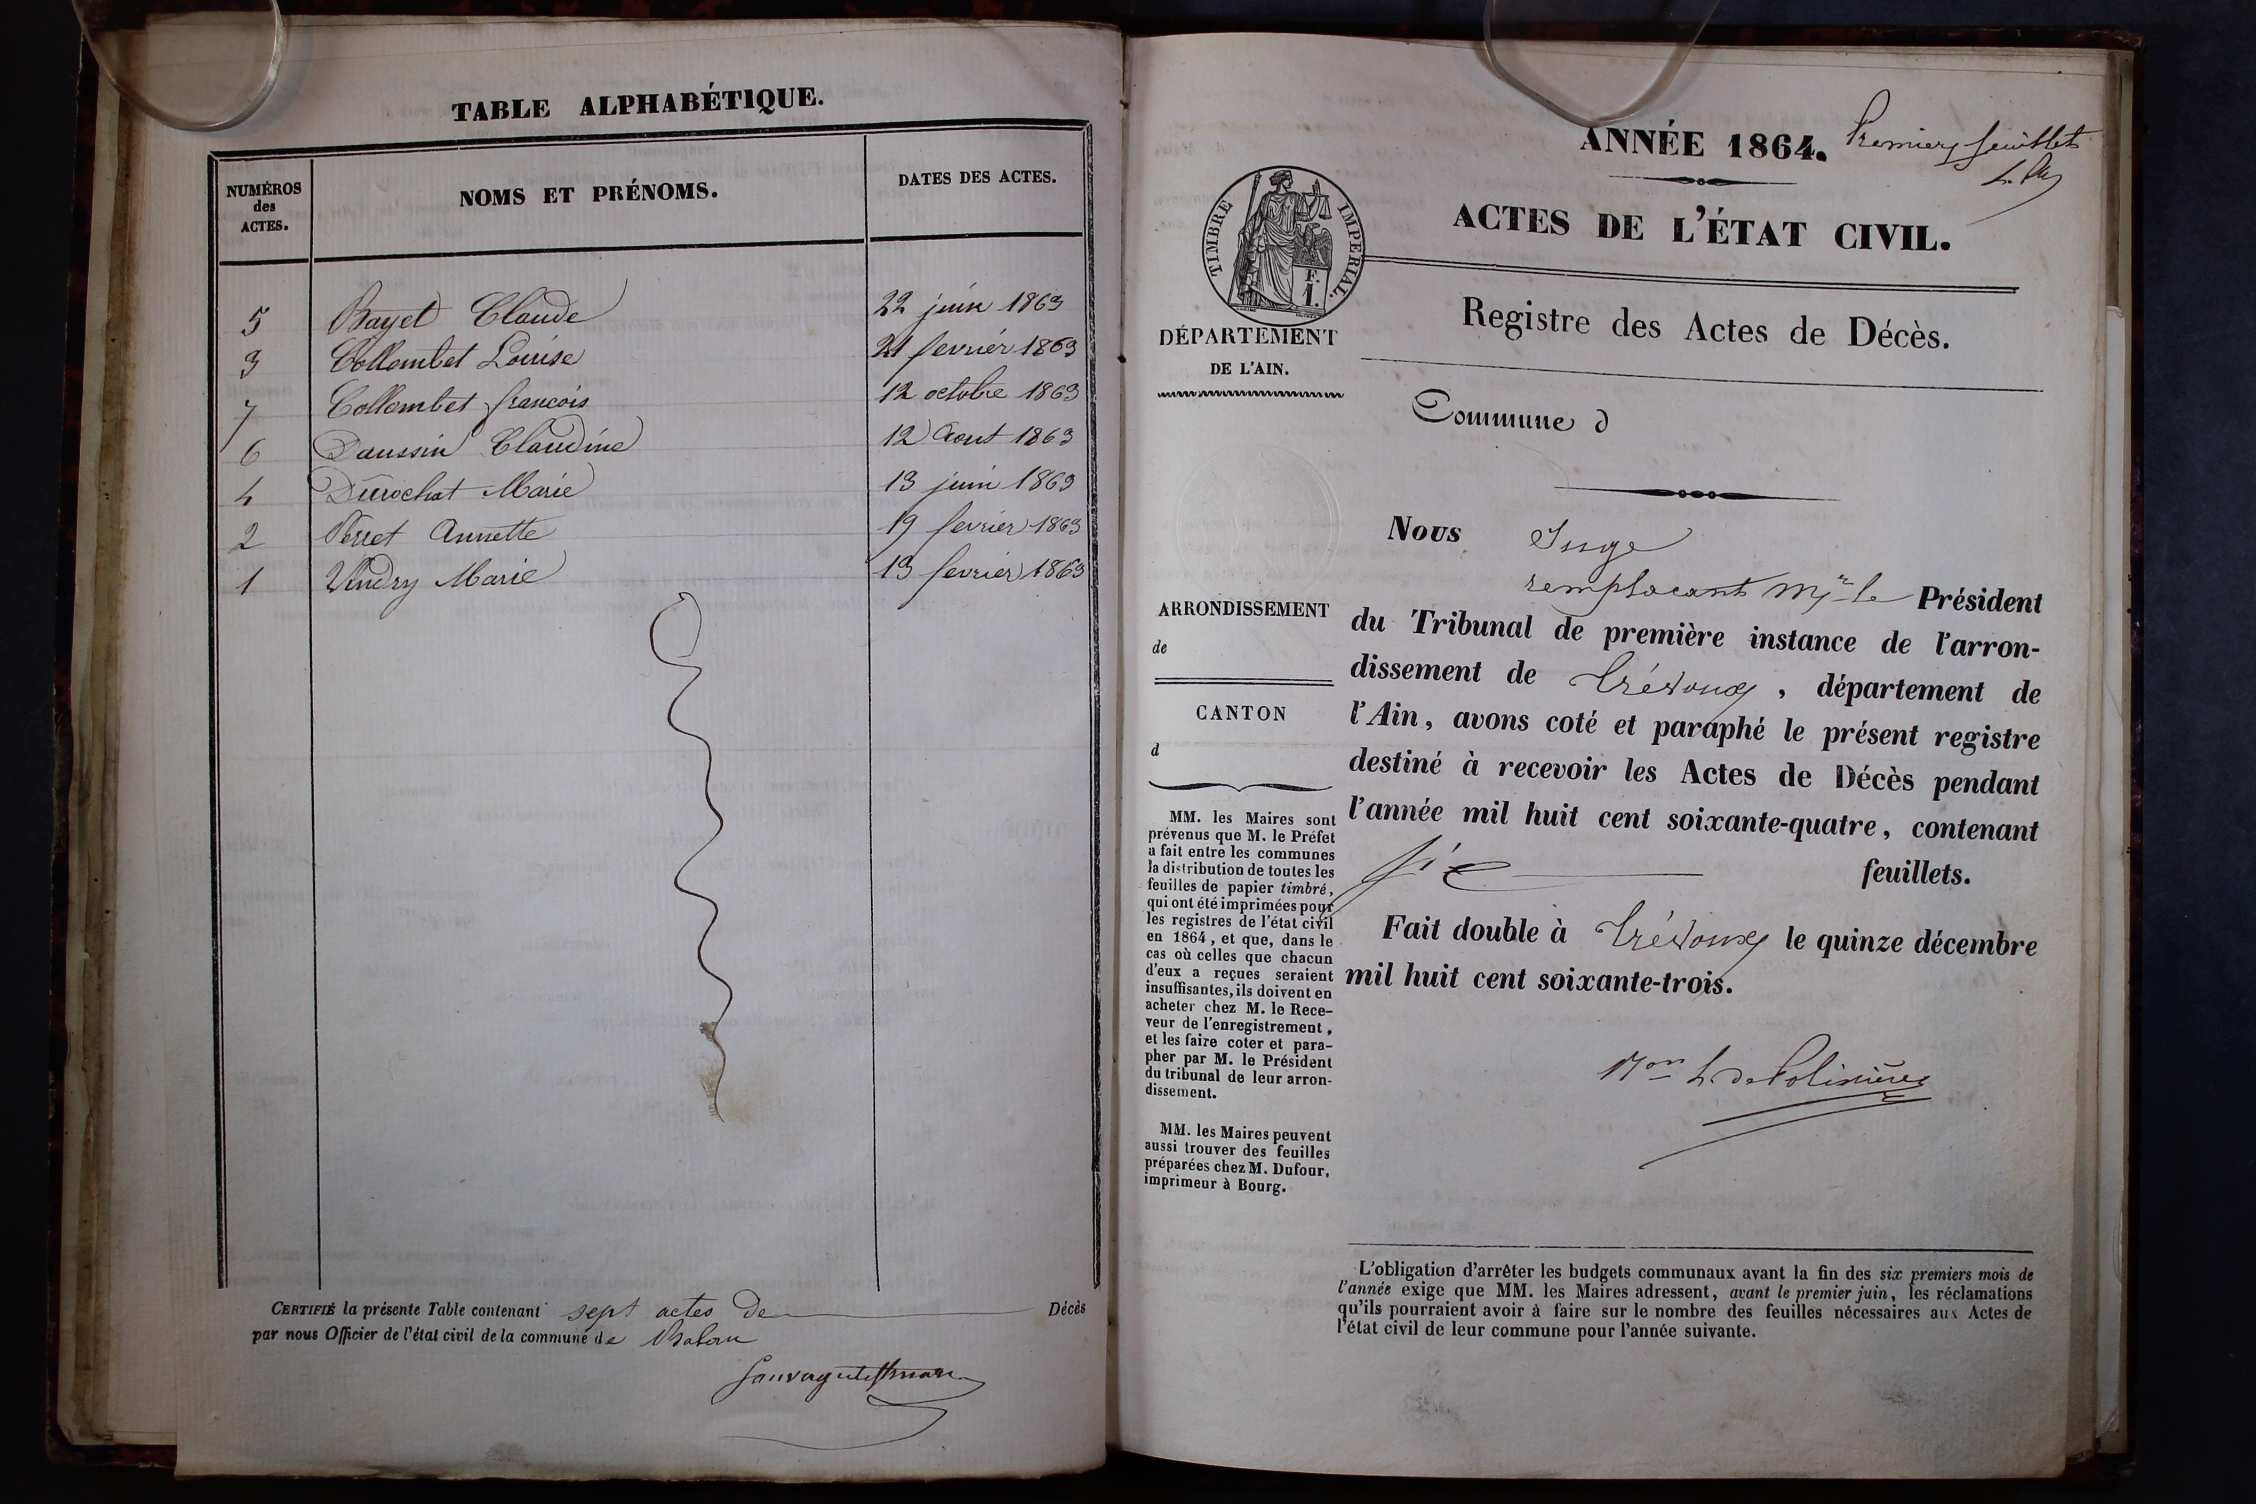 TABLE ALPHABÉTIQUE.
NUMÉROS
des
ACTES.
NOMS ET PRÉNOMS.
DATES DES ACTES.
5 Bayet Claude 22 juin 1863
3 Collombet Louise 21 fevrier 1863
7 Collombet francois 12 octobre 1863
6 Daussin Claudine 12 Aout 1863
4 Durochat Marie 13 juin 1863
2 Perret Annette 19 fevrier 1863
1 Vindry Marie 13 fevrier 1863
CERTIFIÉ la présente Table contenant sept actes de Décès
par nous Officier de l'état civil de la commune de Balan
ANNÉE 1864.
Premier feuillet
ACTES DE L'ÉTAT CIVIL.
TIMBRE IMPERIAL.
F.
1.
Registre des Actes de Décès.
DÉPARTEMENT
DE L'AIN.
Commune d
ARRONDISSEMENT
de
CANTON
d
MM. les Maires sont
prévenus que M. le Préfet
a fait entre les communes
la distribution de toutes les
feuilles de papier timbré,
qui ont été imprimées pour
les registres de l'état civil
en 1864, et que, dans le
cas où celles que chacun
d'eux a reçues seraient
insuffisantes, ils doivent en
acheter chez M. le Rece-
veur de l'enregistrement,
et les faire coter et para-
pher par M. le Président
du tribunal de leur arron-
dissement.
MM. les Maires peuvent
aussi trouver des feuilles
préparées chez M. Dufour,
imprimeur à Bourg.
Nous Juge
remplacant Mr le Président
du Tribunal de première instance de l'arron-
dissement de Trévoux, département de
l'Ain, avons coté et paraphé le présent registre
destiné à recevoir les Actes de Décès pendant
l'année mil huit cent soixante-quatre, contenant
six feuillets.
Fait double à Trévoux le quinze décembre
mil huit cent soixante-trois.
L. de Polinière
L'obligation d'arrêter les budgets communaux avant la fin des six premiers mois de
l'année exige que MM. les Maires adressent, avant le premier juin, les réclamations
qu'ils pourraient avoir à faire sur le nombre des feuilles nécessaires aux Actes de
l'état civil de leur commune pour l'année suivante.